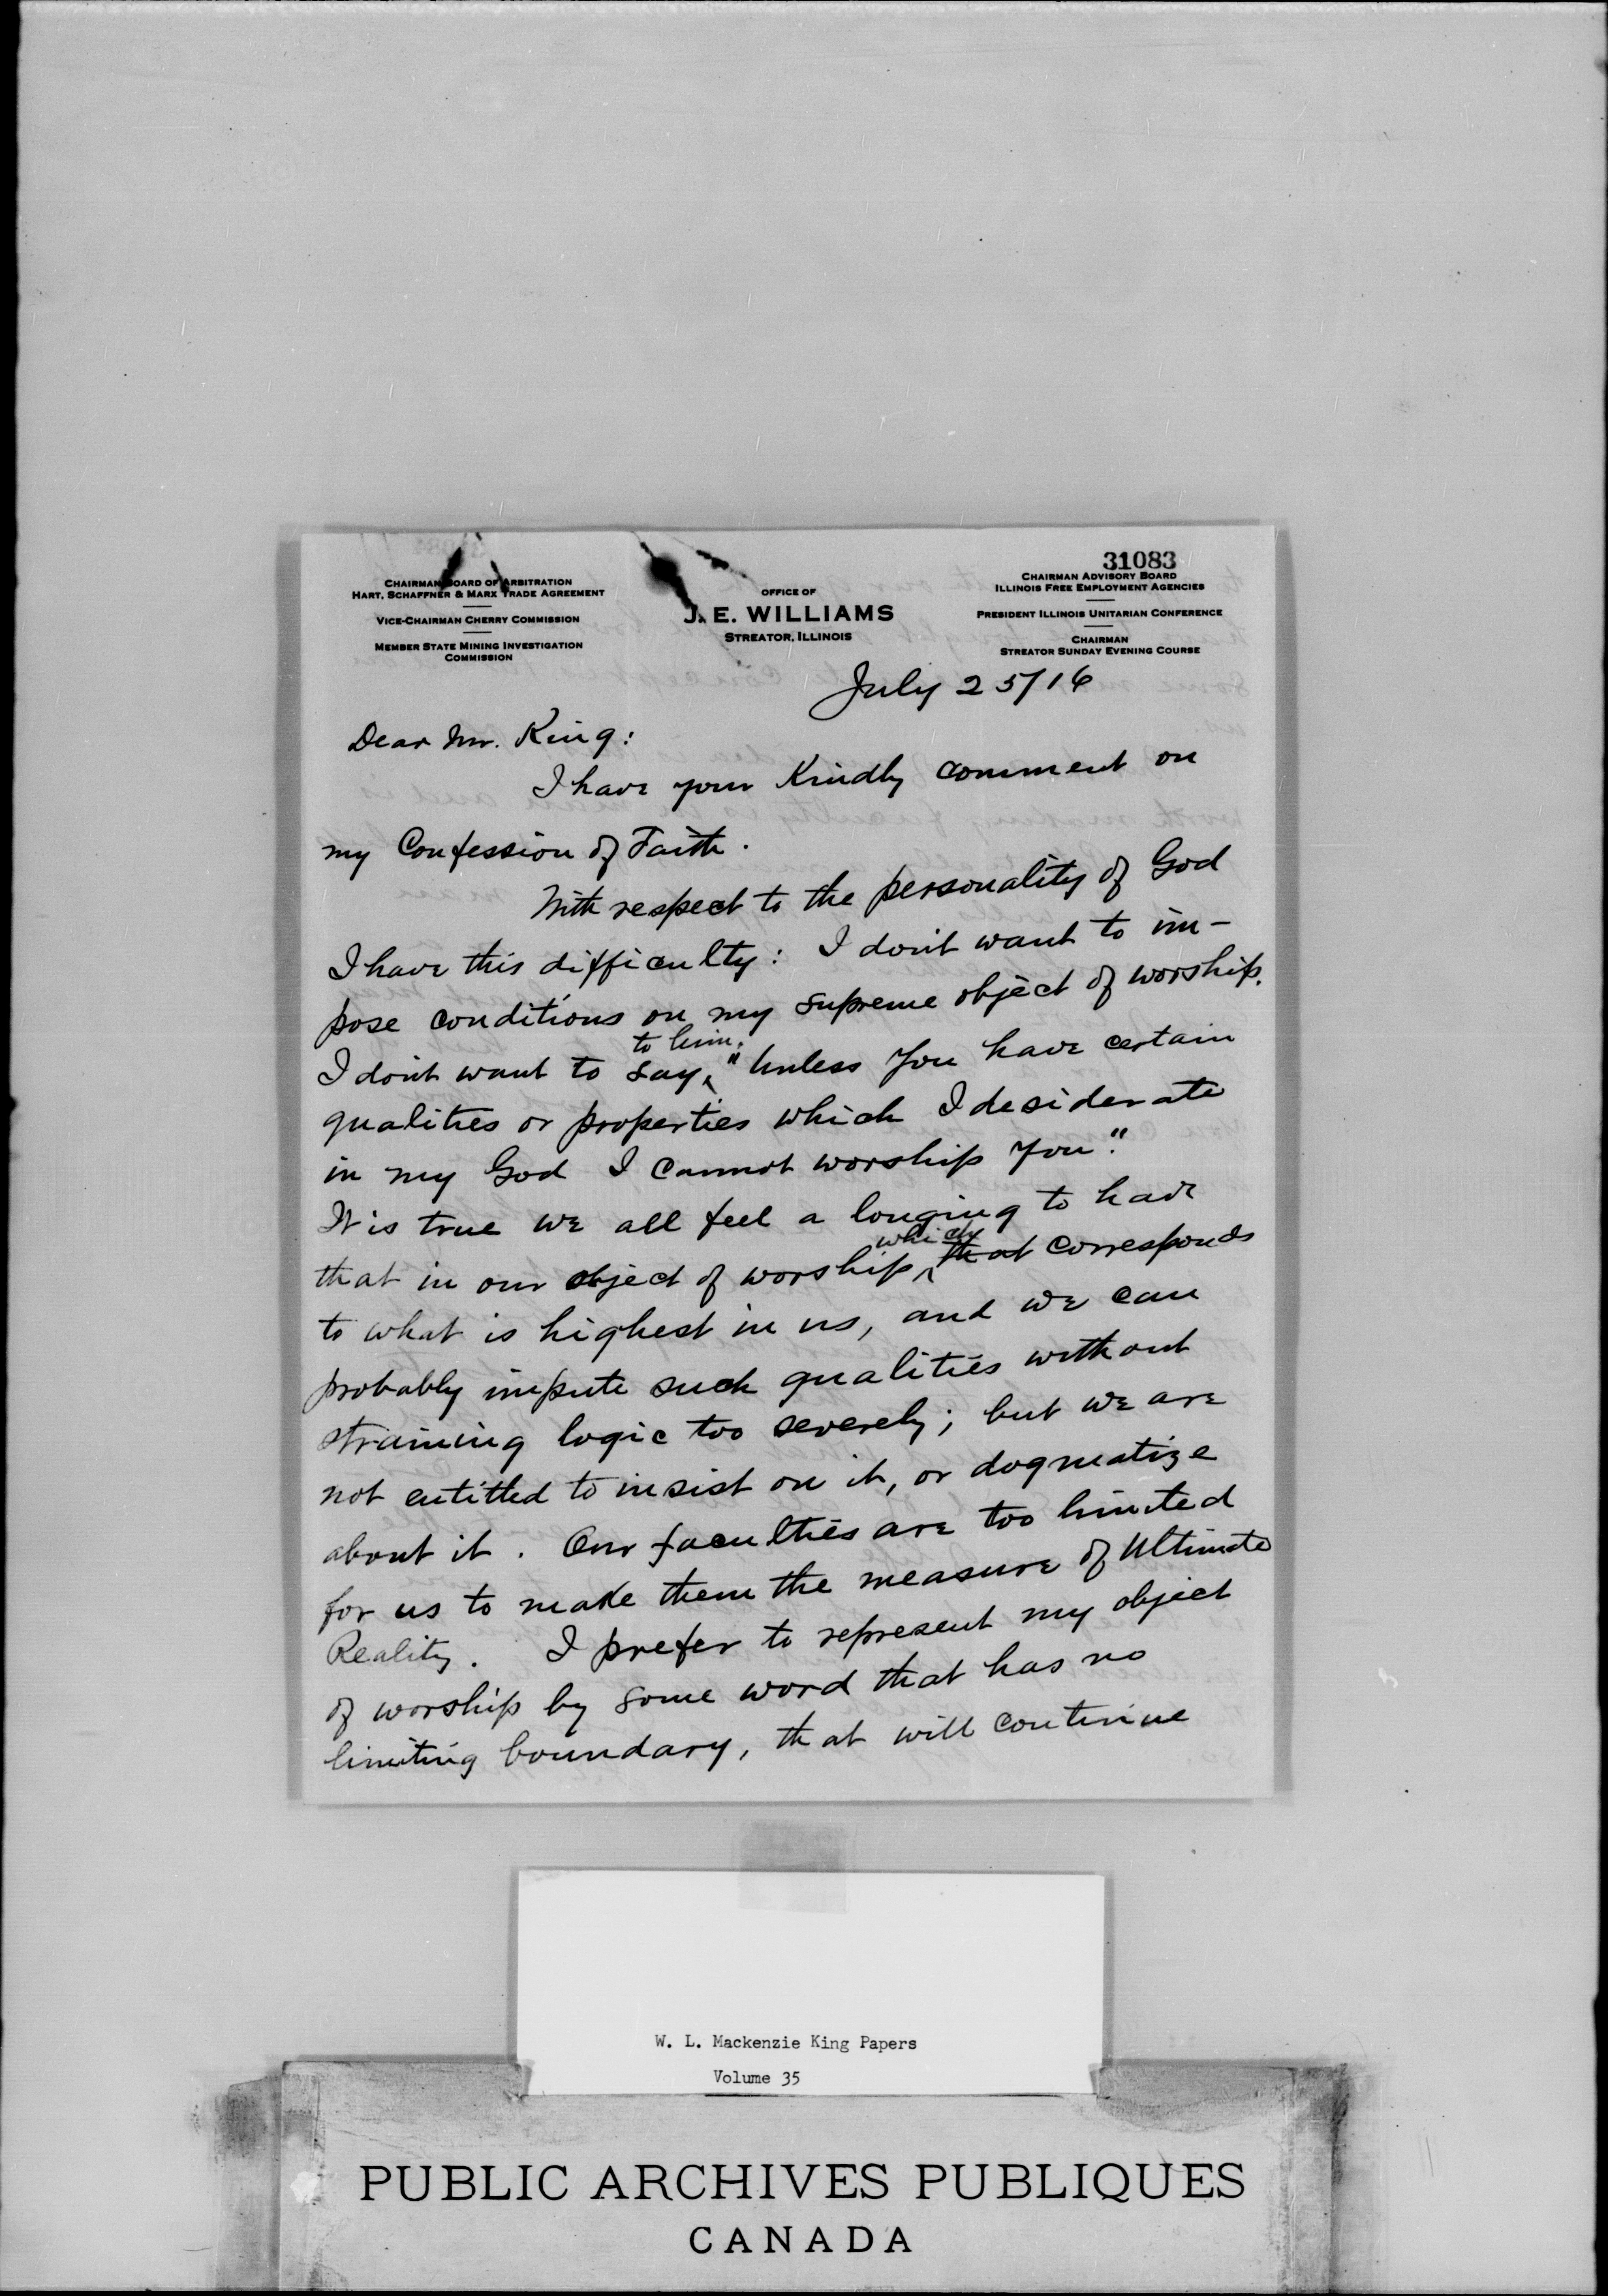 31083
CHAIRMAN BOARD OF ARBITRATION
HART, SCHAFFNER & MARX TRADE AGREEMENT
VICE-CHAIRMAN CHERRY COMMISSION
MEMBER STATE MINING INVESTIGATION
COMMISSION
OFFICE OF
J. E. WILLIAMS
STREATOR, ILLINOIS
CHAIRMAN ADVISORY BOARD
ILLINOIS FREE EMPLOYMENT AGENCIES
PRESIDENT ILLINOIS UNITARIAN CONFERENCE
CHAIRMAN
STREATOR SUNDAY EVENING COURSE
July 25/16
Dear Mr. King:
I have your Kindly comment on
my Confession of Faith.
With respect to the personality of God
I have this difficulty: I don't want to im-
pose conditions on my supreme object of worship.
to him,
I don't want to say, "Unless You have certain
qualities or properties which I desiderate
in my God I cannot worship You."
It is true we all feel a longing to have
which
that in our object of worship, that corresponds
to what is highest in us, and we can
probably impute such qualities without
straining logic too severely; but we are
not entitled to insist on it, or dogmatize
about it. Our faculties are too limited
for us to make them the measure of Ultimate
Reality. I prefer to represent my object
of worship by some word that has no
limiting boundary, that will continue
W. L. Mackenzie King Papers
Volume 35
PUBLIC ARCHIVES PUBLIQUES
CANADA